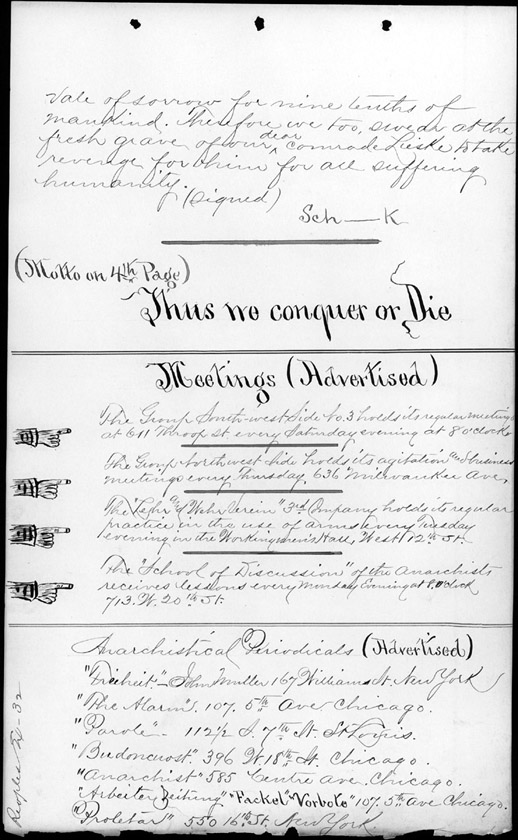 Vale of sorrow for nine tenths of
mankind. Therefore we too, swear at the
fresh grave of our dear comrade Lieske to take
revenge for him for all suffering
humanity.
(signed)
Sch—K
(Motto on 4th Page)
Thus we conquer or Die
Meetings (Advertised)
The Group South-west Side No. 3 holds its regular meetings
at 611 Throop St every Saturday evening at 8 o'clock
The Group Northwest Side holds its agitation "and" business
meetings every Thursday, 636 Milwaukee Ave,
The "Lehr und Wehr Verein" 3rd Company holds its regular
practice in the use of arms every Tuesday
evening in the Workingmen's Hall, West 12th St.
The "School of Discussion" of the Anarchists
receives lessons every Monday Evening at 8 o'clock
713. W. 20th St.
Anarchistical Periodicals (Advertised)
"Freiheit" - John Muller 167 William St. New York
"The Alarm", 107. 5th Ave Chicago.
"Parole" - 1121/2 S. 7th St. St Louis.
"Budoncnost". 396 W. 18th St. Chicago.
"Anarchist" 585 Centre Ave. Chicago.
"Arbeiter Zeitung" "Fackel" "Vorbote" 107. 5th Ave Chicago
"Proletar" 550 16th St. New York
Peoples Ex-32